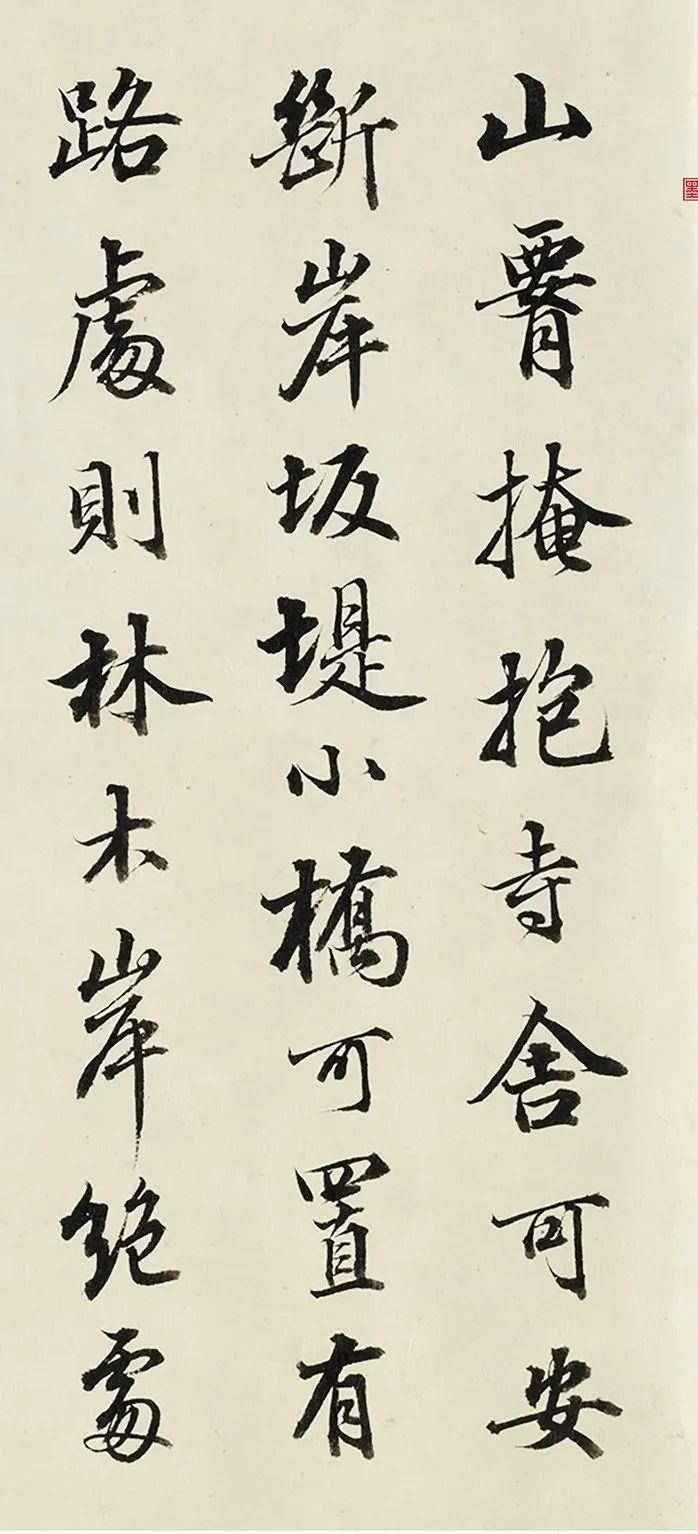 山腰掩抱寺舍可安
斷岸坂堤小橋可置有
路處則林木岸絕處